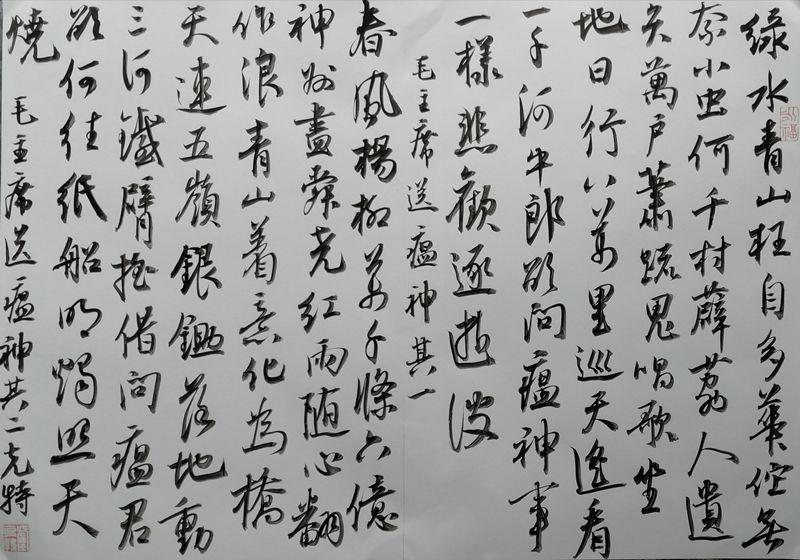 綠水青山枉自多華佗無
奈小虫何千村薜荔人遺
矢萬户蕭疏鬼唱歌坐
地日行八万里巡天遥看
一千河牛郎欲问瘟神事
一樣悲歡逐逝波
毛主席送瘟神其一
春風楊柳万千條六億
神州盡舜尧红雨随心翻
作浪青山着意化為橋
天連五嶺銀鋤落地動
三河鐵臂摇借问瘟君
欲何往紙船明燭照天
燒
毛主席送瘟神其二克特